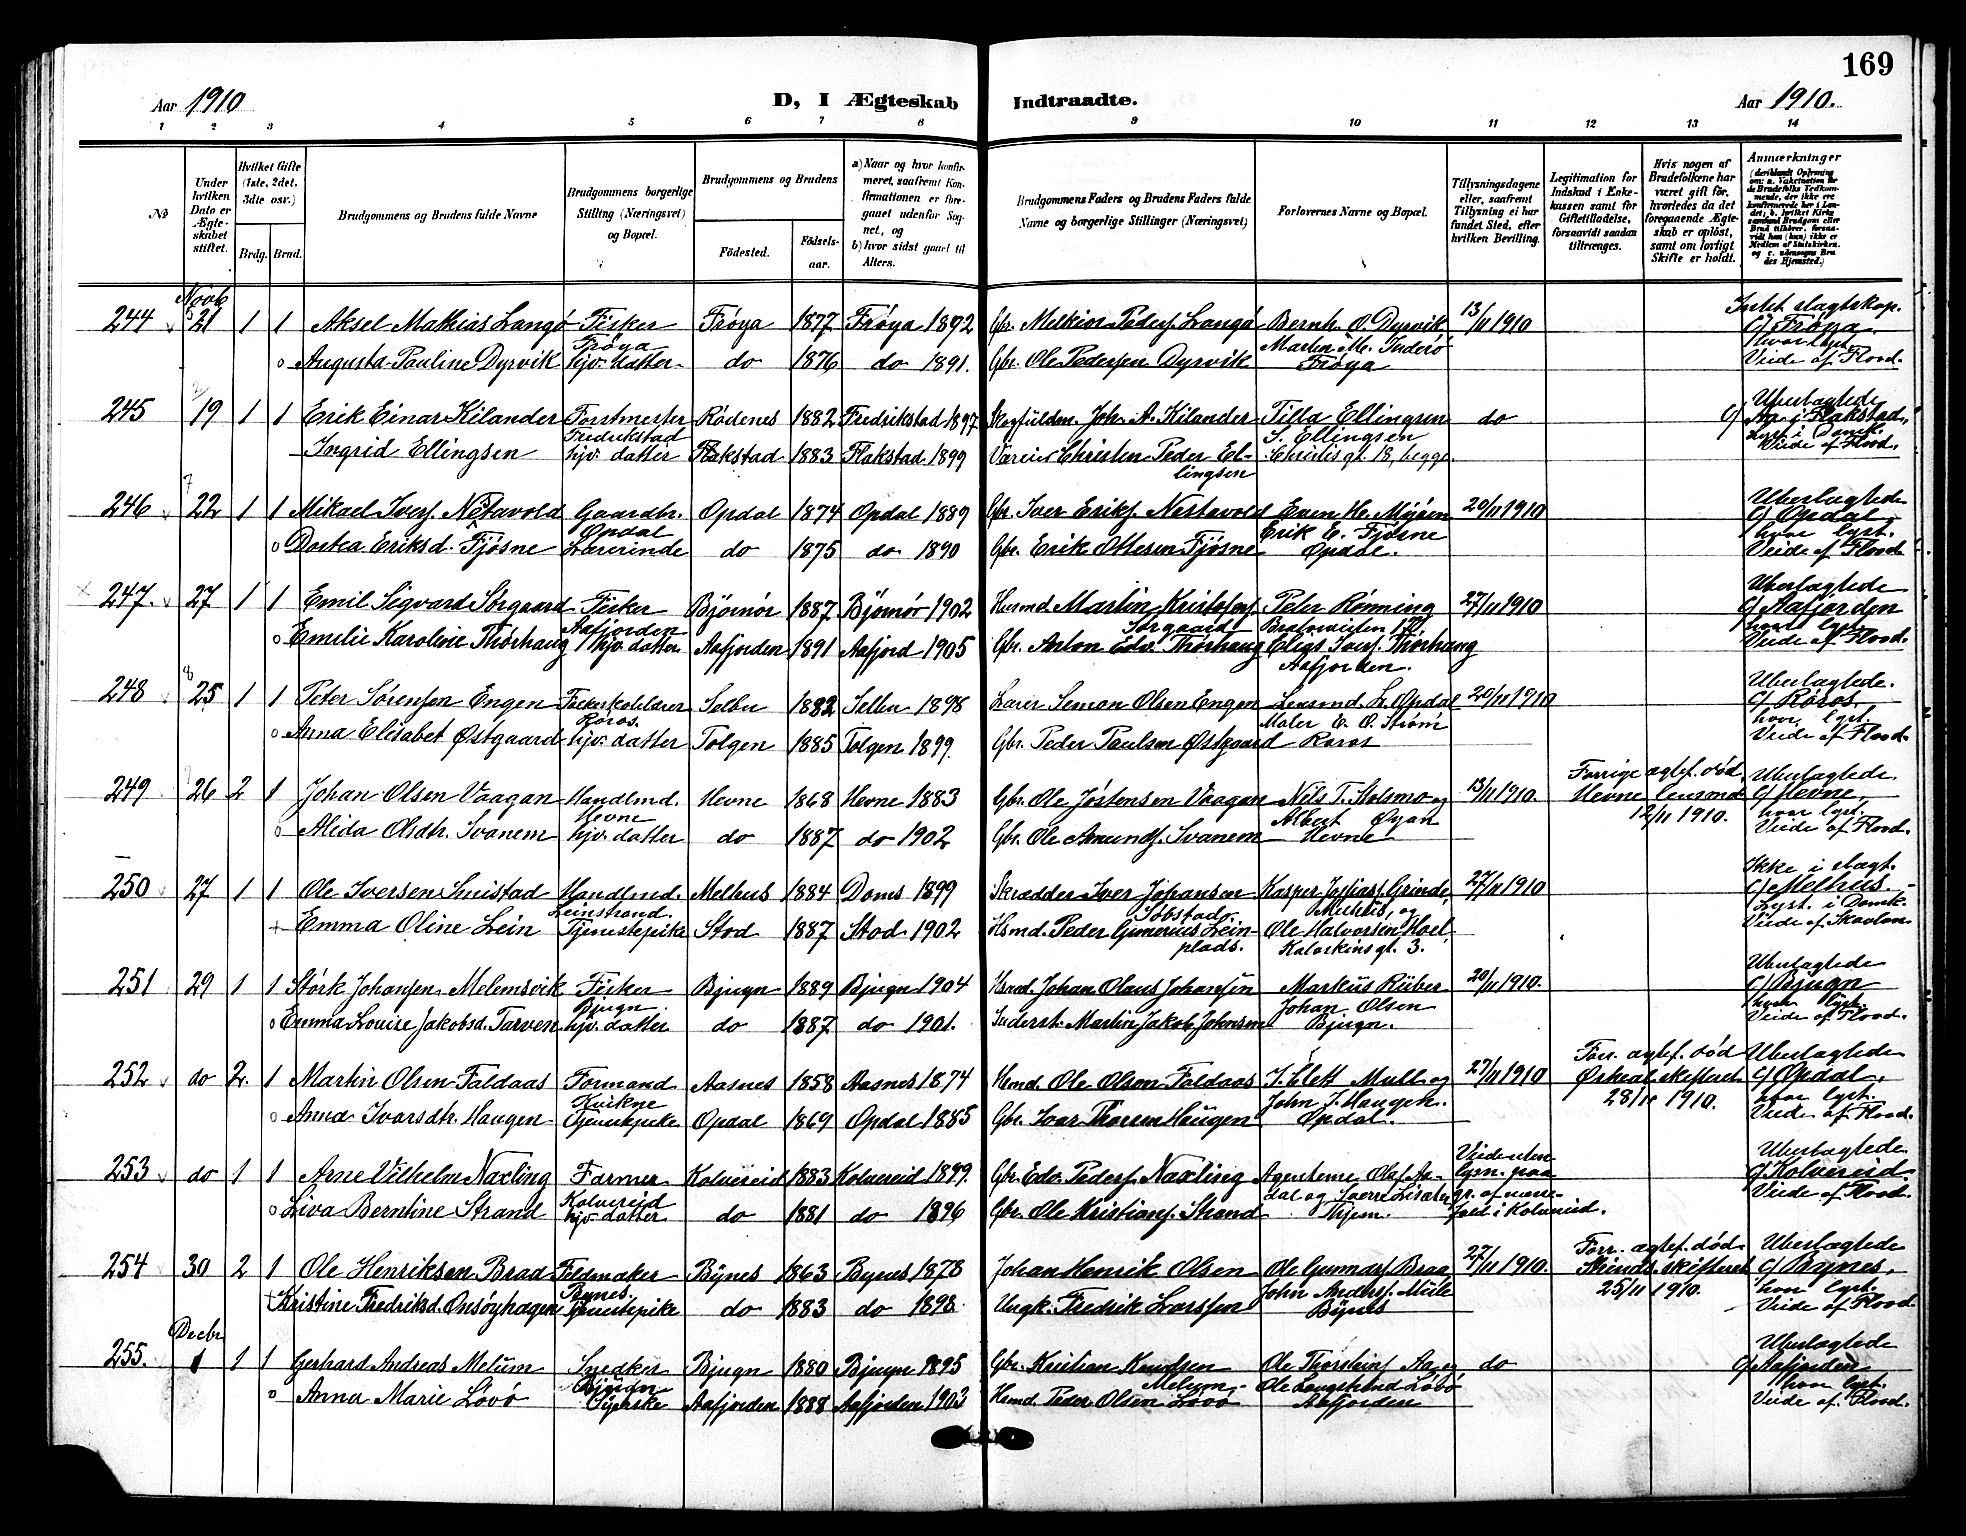 169
Aar 1910 D, I Ægteskab Indtraadte. Aar 1910.
1 2 3 4 5 6 7 8 9 10 11 12 13 14
No
Under hvilken Dato er Ægteskabet stiftet.
Hvilket Gifte (1ste, 2det, 3die osv.)
Brdg. Brud.
Brudgommens og Brudens fulde Navne
Brudgommens borgerlige Stilling (Næringsvei) og Bopæl.
Brudgommens og Brudens
Fødested. Fødselsaar.
a) Naar og hvor konfirmeret, saafremt Konfirmationen er foregaaet udenfor Sognet, og
b) hvor sidst gaaet til Alters.
Brudgommens Faders og Brudens Faders fulde Navne og borgerlige Stillinger (Næringsvei)
Forlovernes Navne og Bopæl.
Tillysningsdagene eller, saafremt Tillysning ei har fundet Sted, efter hvilken Bevilling.
Legitimation for Indskud i Enkekassen samt for Giftetilladelse, forsaavidt saadan tiltrænges.
Hvis nogen af Brudefolkene har været gift før, hvorledes da det foregaaende Ægteskab er opløst, samt om lovligt Skifte er holdt.
Anmærkninger
Novb
244 21 1 1 Aksel Mathias Langø Fisker Frøya 1877 Frøya 1892 Gbr. Melkior Peders. Langø Bernh. O. Dyrvik 13/11 1910 Intet slagtskap.
Frøya Martin M. Inderø G/ Frøya
Augusta Pauline Dyrvik hjv. datter do 1876 do 1891. Gbr. Ole Pedersen Dyrvik Frøya hvor lyst. Viede af Flood.
245 19 1 1 Erik Einar Kilander Forstmester Rødenes 1882 Fredrikstad 1897 Skogfuldm. Joh. A. Kilander Tilla Ellingsen do Ubeslægtede
Fredrikstad S. Ellingsen Flakstad,
Ingrid Ellingsen hjv. datter Flakstad 1883 Flakstad 1899 Christen Peder Ellingsen Christis gt. 18, begge. lyst i Domk. Viede af Flood.
246 22 1 1 Mikael Ivers. Nestavold Gaardbr. Opdal 1874 Opdal 1889 Gbr. Iver Eriks. Nestavold Even H. Mjøen 20/11 1910 Ubeslægtede
Opdal Erik E. Fjøsne G/ Opdal
Dortea Eriksd. Fjøsne Lærerinde do 1875 do 1890 Gbr. Erik Ottesen Fjøsne Opdal. hvor lyst. Viede af Flood
247. 27 1 1 Emil Sigvard Sørgaard Fisker Bjørnør 1887 Bjørnør 1902 Husmd. Martin Kristofers. Sørgaard Peter Rønning 27/11 1910 Ubeslægtede
Aafjorden G/ Aafjorden
Emilie Karoline Thørhaug hjv. datter Aafjorden 1891 Aafjord 1905 Gbr. Anton Edv. Thørhaug Elias Ivers. Thørhaug Aafjorden. hvor lyst. Viede af Flood.
248 25 1 1 Peter Sørensen Engen Selbu 1882 Selbu 1898 Lærer Simon Olsen Engen Lensmd. L. Opdal 20/11 1910 Ubeslægtede.
Røros. Maler E. O. Strøm G/ Røros.
Anna Elisabet Østgaard hjv. datter Tolgen 1885 Tolgen 1899. Gbr. Peder Paulsen Østgaard Røros hvor lyst. Viede af Flood.
249 26 2 1 Johan Olsen Vaagan Handlmd. Hevne 1868 Hevne 1883 Gbr. Ole Jøstensen Vaagan Nils T. Holsmo og 13/11 1910. Forrige ægtef. død Hevne lensmd. 12/11 1910. Ubeslægtede.
Hevne Albert Øyan G/ Hevne,
Alida Olsdtr. Svanem hjv. datter do 1887 do 1902 Gbr. Ole Amunds. Svanem Hevne hvor lyst. Viede af Flood.
250 27 1 1 Ole Iversen Smistad Handlmd. Melhus 1884 Doms 1899 Skrædder Iver Johansen Søbstad. Kasper Grinde, Melhus, og 27/11 1910 Ikke i slægt.
Leinstrand. G/ Melhus.
Emma Oline Lein Tjenestepike Stod 1887 Stod 1902 Hsmd. Peder Gunerius Leinplads. Ole Halvorsen Hoel, Kalvskinsgt. 3. Lyst. i Domk. Viede af Skavlan.
251 29 1 1 Størk Johansen Melemsvik Fisker Bjugn 1889 Bjugn 1904 Hsmd. Johan Olaus Johansen Markus Riiber 20/11 1910. Ubeslægtede
Bjugn Johan Olsen G/ Bjugn
Emma Lovise Jakobsd. Tarven hjv. datter do 1887 do 1901. Inderst. Martin Jakob Johnsen Bjugn. hvor lyst. Viede af Flood.
252 do 2. 1 Martin Olsen Faldaas Formand Aasnes 1858 Aasnes 1874 Hsmd. Ole Olsen Faldaas Mull og 27/11 1910 Forr. ægtef. død skifteret 28/11 1910. Ubeslægtede
Kvikne John I. Haugen. G/ Opdal,
Anna Ivarsdtr. Haugen Tjenestpike Opdal 1869 Opdal 1885 Gbr. Ivar Haugen Opdal. hvor lyst. Viede af Flood.
253 do 1 1 Arne Vilhelm Naxling Farmer Kolvereid 1883 Kolvereid 1899. Gbr. Edv. Peders. Naxling Agenterne Olaf Aadal og Sverre Viede uten lysn. paa gr. af nødsfald i Kolvereid. Ubeslægtede
Kolvereid G/ Kolvereid.
Liva Berntine Strand hjv. datter do 1881 do 1896 Gbr. Ole Kristians. Strand Viede af Flood.
254 30 2 1 Ole Henriksen Braa Feldmaker Bynes 1863 Bynes 1878 Johan Henrik Olsen Ole Gunnars. Braa 27/11 1910. Forr. ægtef. død. skifteret 25/11 1910. Ubeslægtede
Bynes. John Anders. Mule G/ Bynes,
Kristine Fredriksd. Onsøyhagen Tjenestepike do 1883 do 1898 Ungk. Fredrik Larssen Bynes hvor lyst. Viede af Flood.
Decbr
255. 1 1 1 Gerhard Andreas Melum Snedker Bjugn 1880 Bjugn 1895 Gbr. Kristian Knudsen Melum Ole Thorsteins. Aa og do Ubeslægtede
Bjugn Ole Langstrand Løvø G/ Aafjorden
Anna Marie Løvø Syerske Aafjorden 1888 Aafjorden 1903 Hsmd. Peder Olsen Løvø Aafjorden hvor lyst. Viede af Flood.